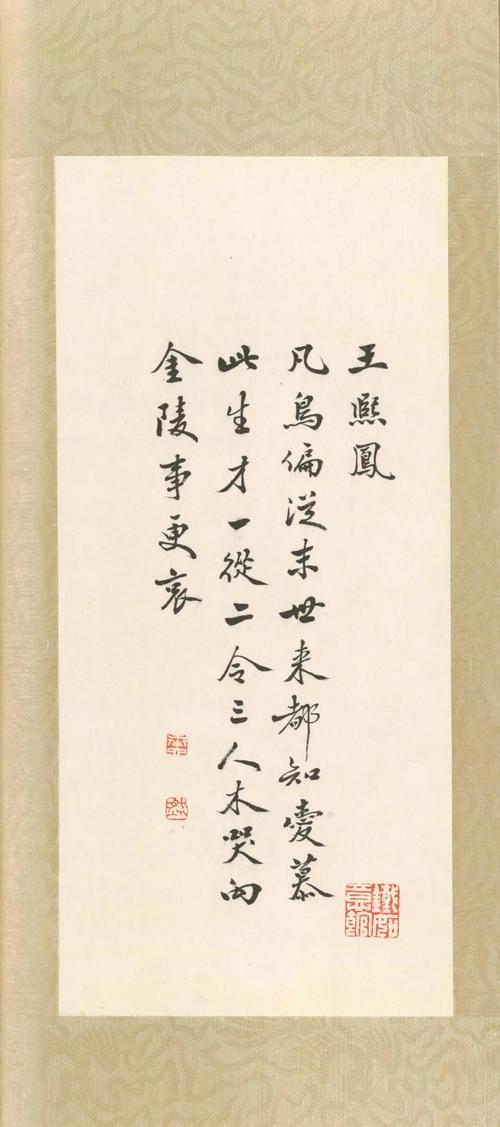 王熙鳳
凡鳥偏従末世来都知愛慕
此生才一從二令三人木哭向
金陵事更哀